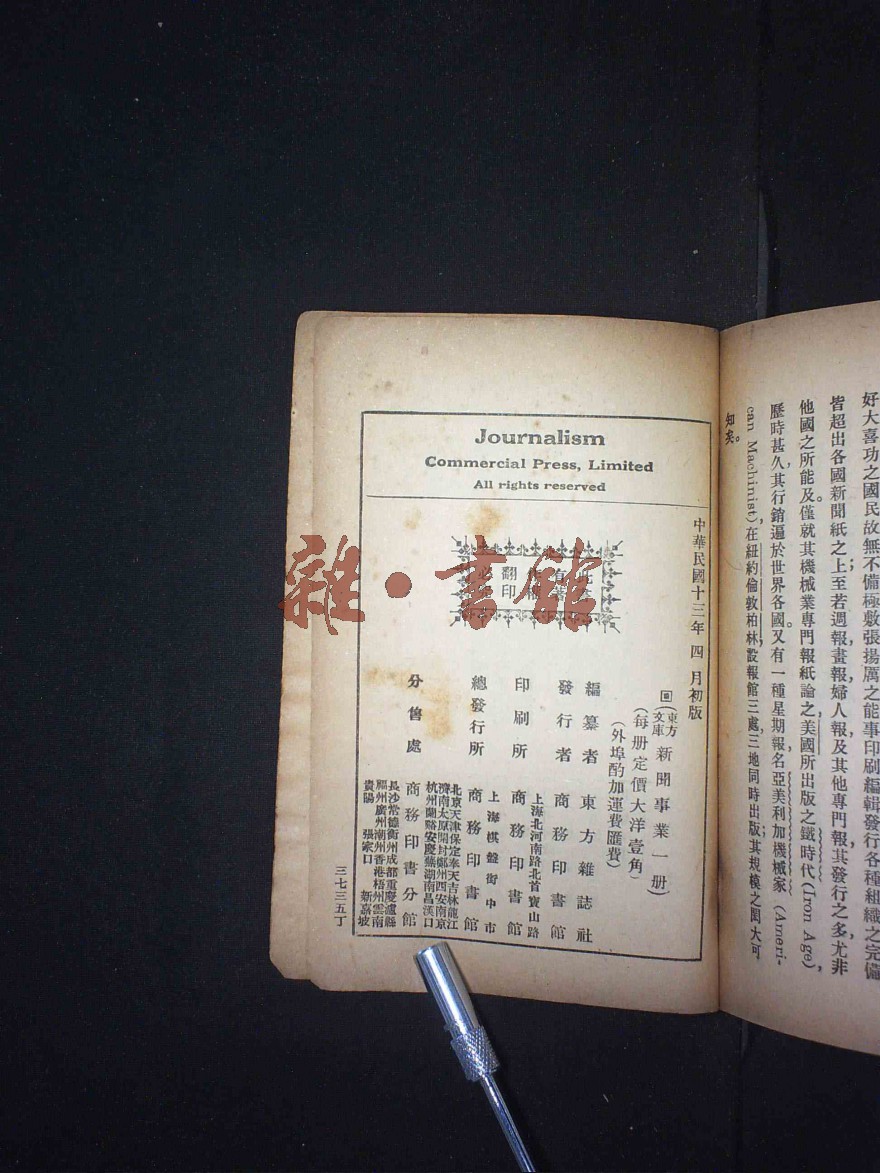 好大喜功之國民故無不備極敷張揚厲之能事印刷編輯發行各種組織之完備
皆超出各國新聞紙之上;至若週報畫報婦人報及其他專門報其發行之多尤非
他國之所能及。僅就其機械業專門報紙論之,美國所出版之鐵時代(Iron Age),
歷時甚久,其行銷遍於世界各國。又有一種星期報名亞美利加機械家(Ameri-
can Machinist),在紐約倫敦柏林設報館三處,三地同時出版;其規模之閎大可
知矣。
Journalism
Commercial Press, Limited
All rights reserved
中華民國十三年四月初版
(東方文庫)新聞事業一册
(每册定價大洋壹角)
(外埠酌加運費匯費)
此書
有著
作權
翻印
必究
編纂者 東方雜誌社
發行者 商務印書館
印刷所 上海北河南路北首寶山路 商務印書館
總發行所 上海棋盤街中市 商務印書館
分售處 商務印書分館
北京天津保定奉天吉林龍江
濟南太原開封鄭州西安南京
杭州蘭谿安慶蕪湖南昌漢口
長沙常德衡州成都重慶瀘縣
福州廣州潮州香港梧州雲南
貴陽 張家口 新嘉坡
三七三五丁
雜·書館